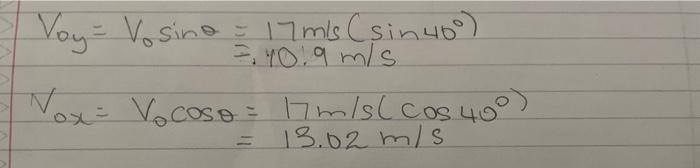 Voy = Vo sinθ = 17m/s (sin40°)
= 10.9 m/s
Vox = Vo cosθ = 17m/s (cos 40°)
= 13.02 m/s